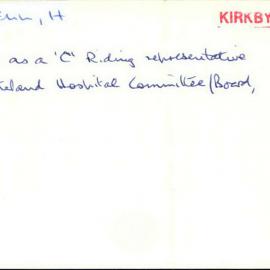 H KIRKBY
as a 'C' Riding representative
Hospital Committee/Board,